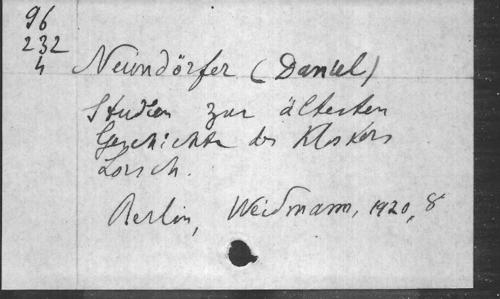 96
232
4
Neundörfer (Daniel)
Studien zur ältesten
Geschichte des Klosters
Lorsch.
Berlin, Weidmann, 1920, 8°